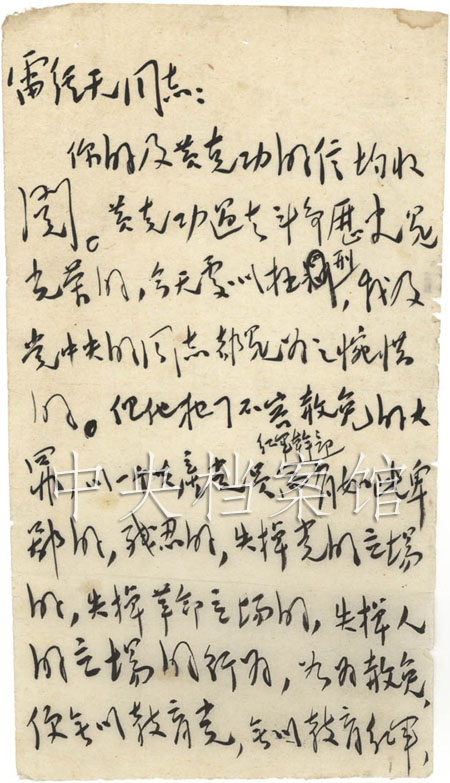 雷经天同志：
你的及黄克功的信均收
阅。黄克功过去斗争歷史是
光荣的，今天处以极刑，我及
党中央的同志都是为之惋惜
的。但他犯了不容赦免的大
红军幹部
罪，以一个共產党员 而有如此卑
鄙的，残忍的，失掉党的立場
的，失掉革命立场的，失掉人
的立場的行为，如为赦免，
便无以教育党，无以教育红军，
中央档案馆